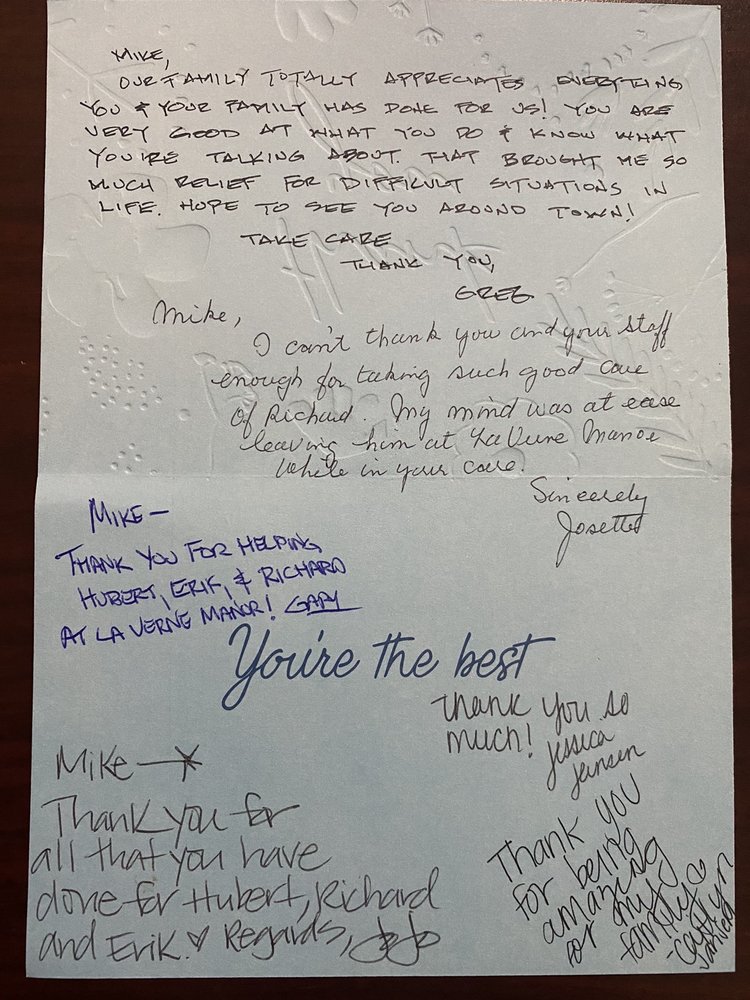 MIKE,
OUR FAMILY TOTALLY APPRECIATES EVERYTHING
YOU & YOUR FAMILY HAS DONE FOR US! YOU ARE
VERY GOOD AT WHAT YOU DO & KNOW WHAT
YOU'RE TALKING ABOUT. THAT BROUGHT ME SO
MUCH RELIEF FOR DIFFICULT SITUATIONS IN
LIFE. HOPE TO SEE YOU AROUND TOWN!
TAKE CARE
THANK YOU,
GREG
Mike,
I can't thank you and your staff
enough for taking such good care
of Richard. My mind was at ease
leaving him at LaVerne Manor
while in your care.
Sincerely
Josette
MIKE—
THANK YOU FOR HELPING
HUBERT, ERIK, & RICHARD
AT LA VERNE MANOR! GARY
You're the best
Thank you so
much!
Jessica
Jensen
Mike—
Thank you for
all that you have
done for Hubert, Richard
and Erik. ♡ Regards, JoJo
Thank you
for being
amazing
for my
family
-Caitlyn